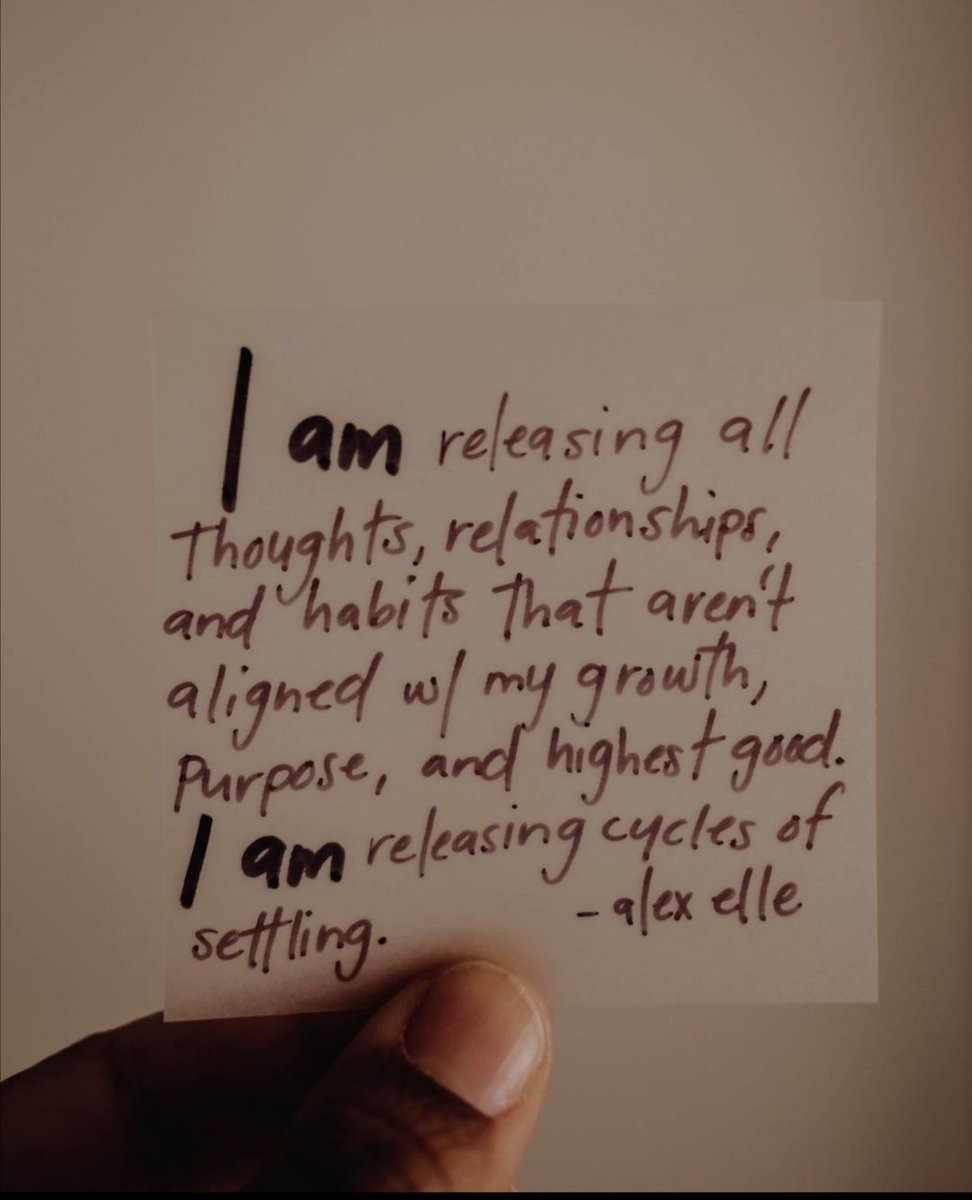 I am releasing all
thoughts, relationships,
and habits that aren't
aligned w/ my growth,
Purpose, and highest good.
I am releasing cycles of
settling.
- alex elle